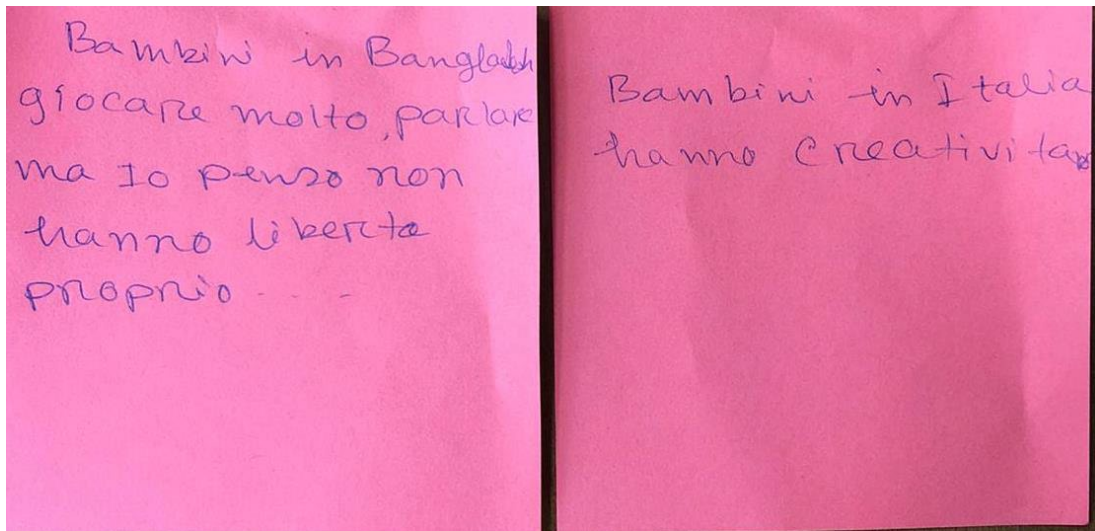 Bambini in Bangladesh
giocare molto, parlare
ma Io penso non
hanno liberta
proprio - - -
Bambini in Italia
hanno creativita